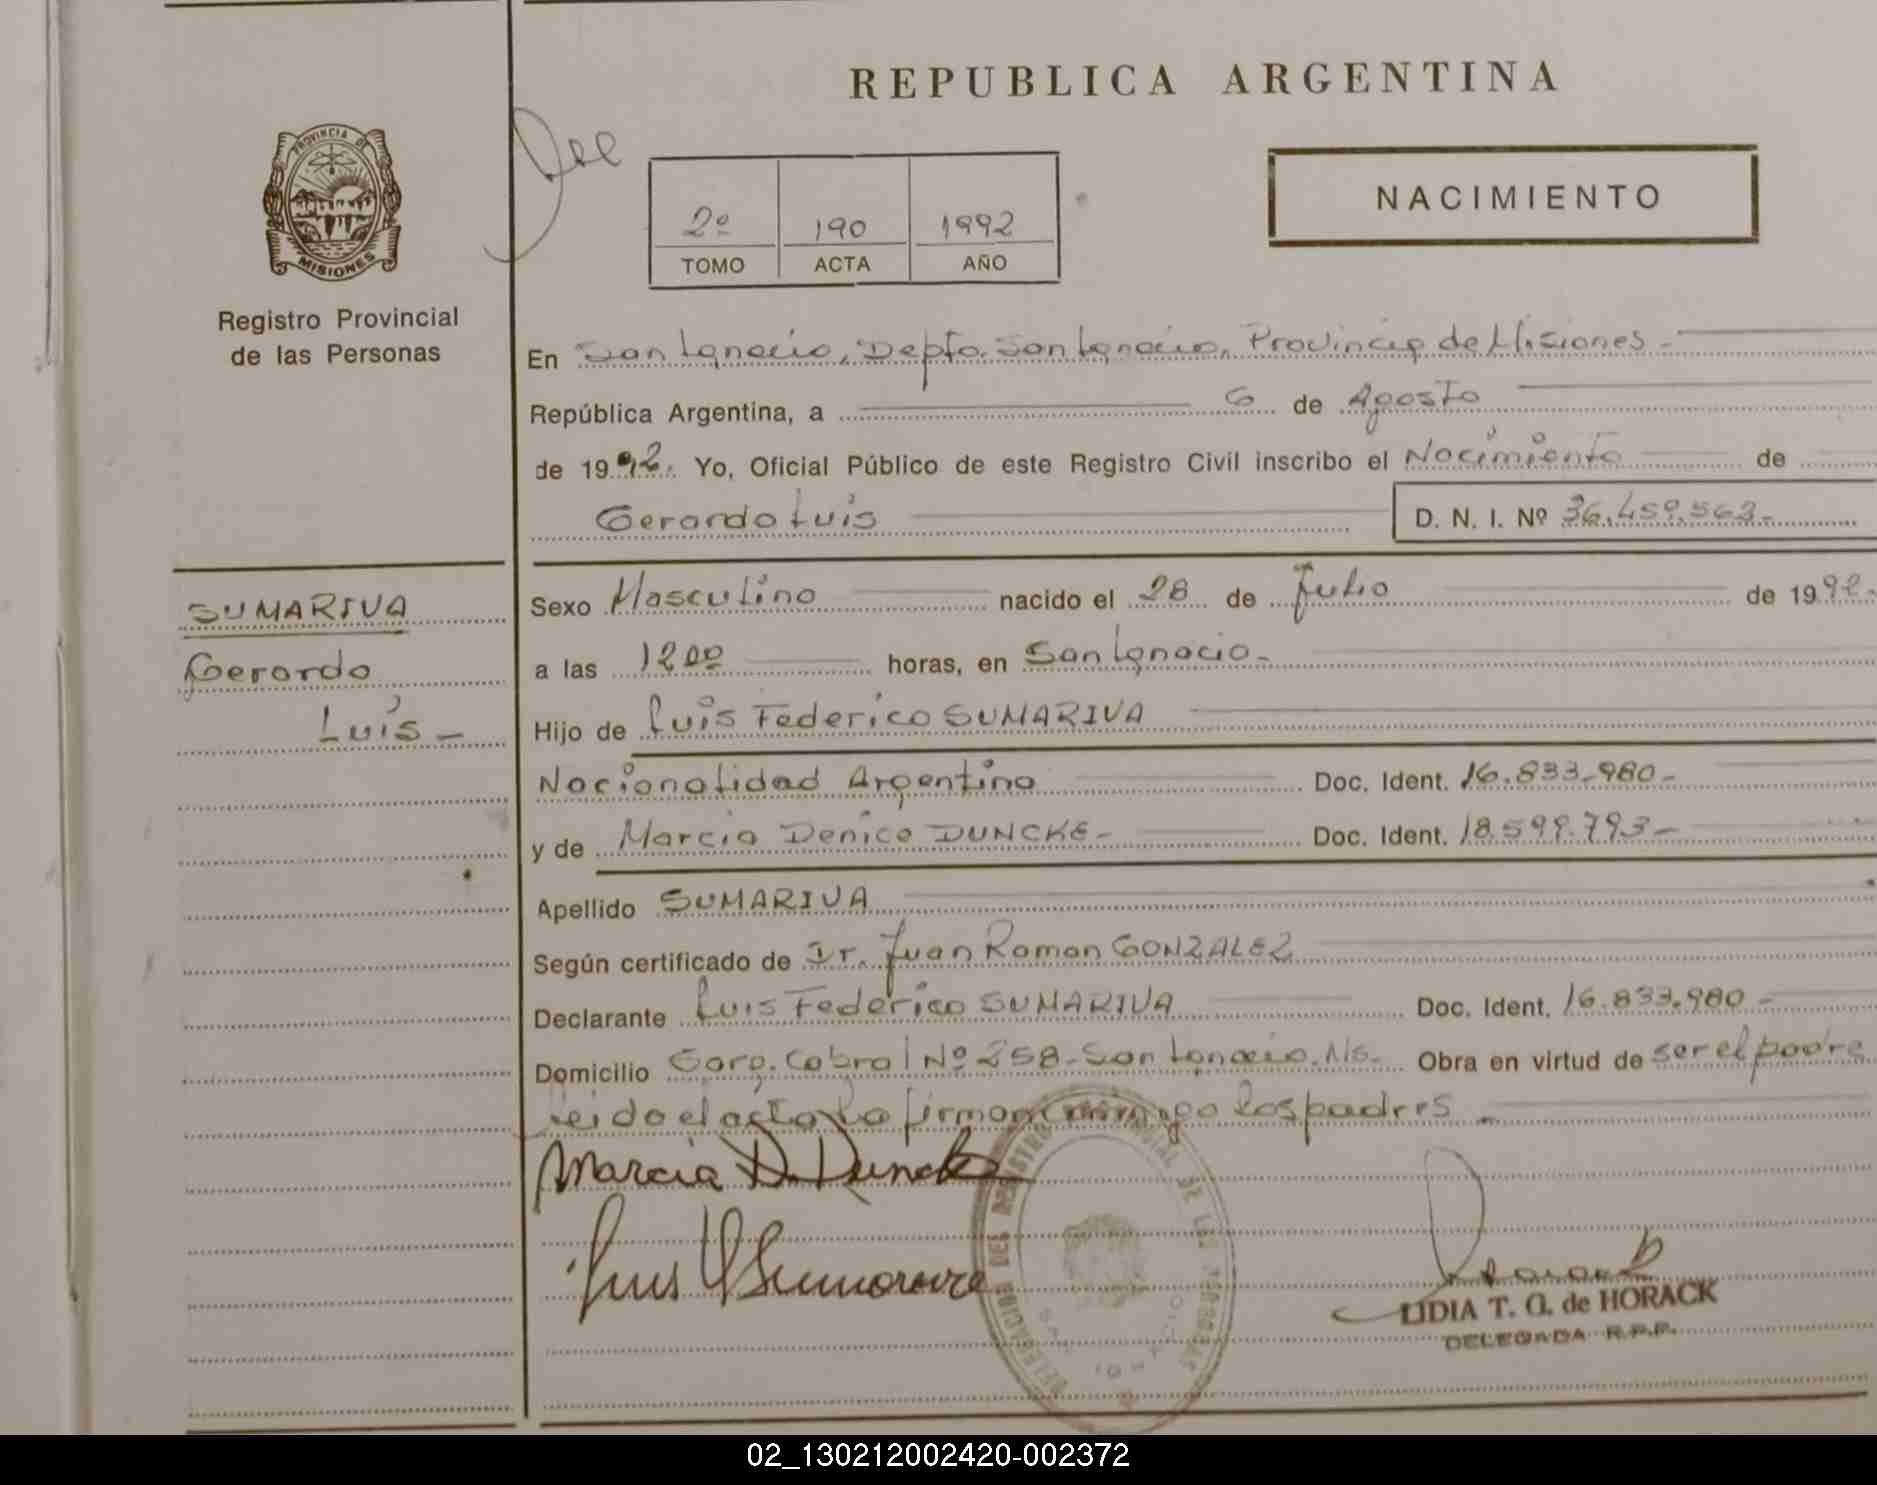 REPUBLICA ARGENTINA
PROVINCIA DE
MISIONES
Registro Provincial
de las Personas
2º 190 1992
TOMO ACTA AÑO
NACIMIENTO
En San Ignacio, Depto. San Ignacio, Provincia de Misiones.-
República Argentina, a 6 de Agosto
de 1992. Yo, Oficial Público de este Registro Civil inscribo el Nacimiento de
Gerardo Luis D. N. I. Nº 36.459.563.-
SUMARIVA
Gerardo
Luis -
Sexo Masculino nacido el 28 de Julio de 1992.
a las 12 00 horas, en San Ignacio.-
Hijo de Luis Federico SUMARIVA
Nacionalidad Argentina Doc. Ident. 16.833.980-
y de Marcia Denice DUNCKE- Doc. Ident. 18.599.793-
Apellido SUMARIVA
Según certificado de Dr. Juan Ramon GONZALEZ
Declarante Luis Federico SUMARIVA Doc. Ident. 16.833.980-
Domicilio Sarg. Cabral Nº 258- San Ignacio. Ms.- Obra en virtud de ser el padre
Leido el acta la firman conmigo los padres.-
Marcia D. Duncke
Luis F Sumariva
DELEGACION DEL REGISTRO PROVINCIAL DE LAS PERSONAS
LIDIA T. G. de HORACK
DELEGADA R.P.P.
02_130212002420-002372